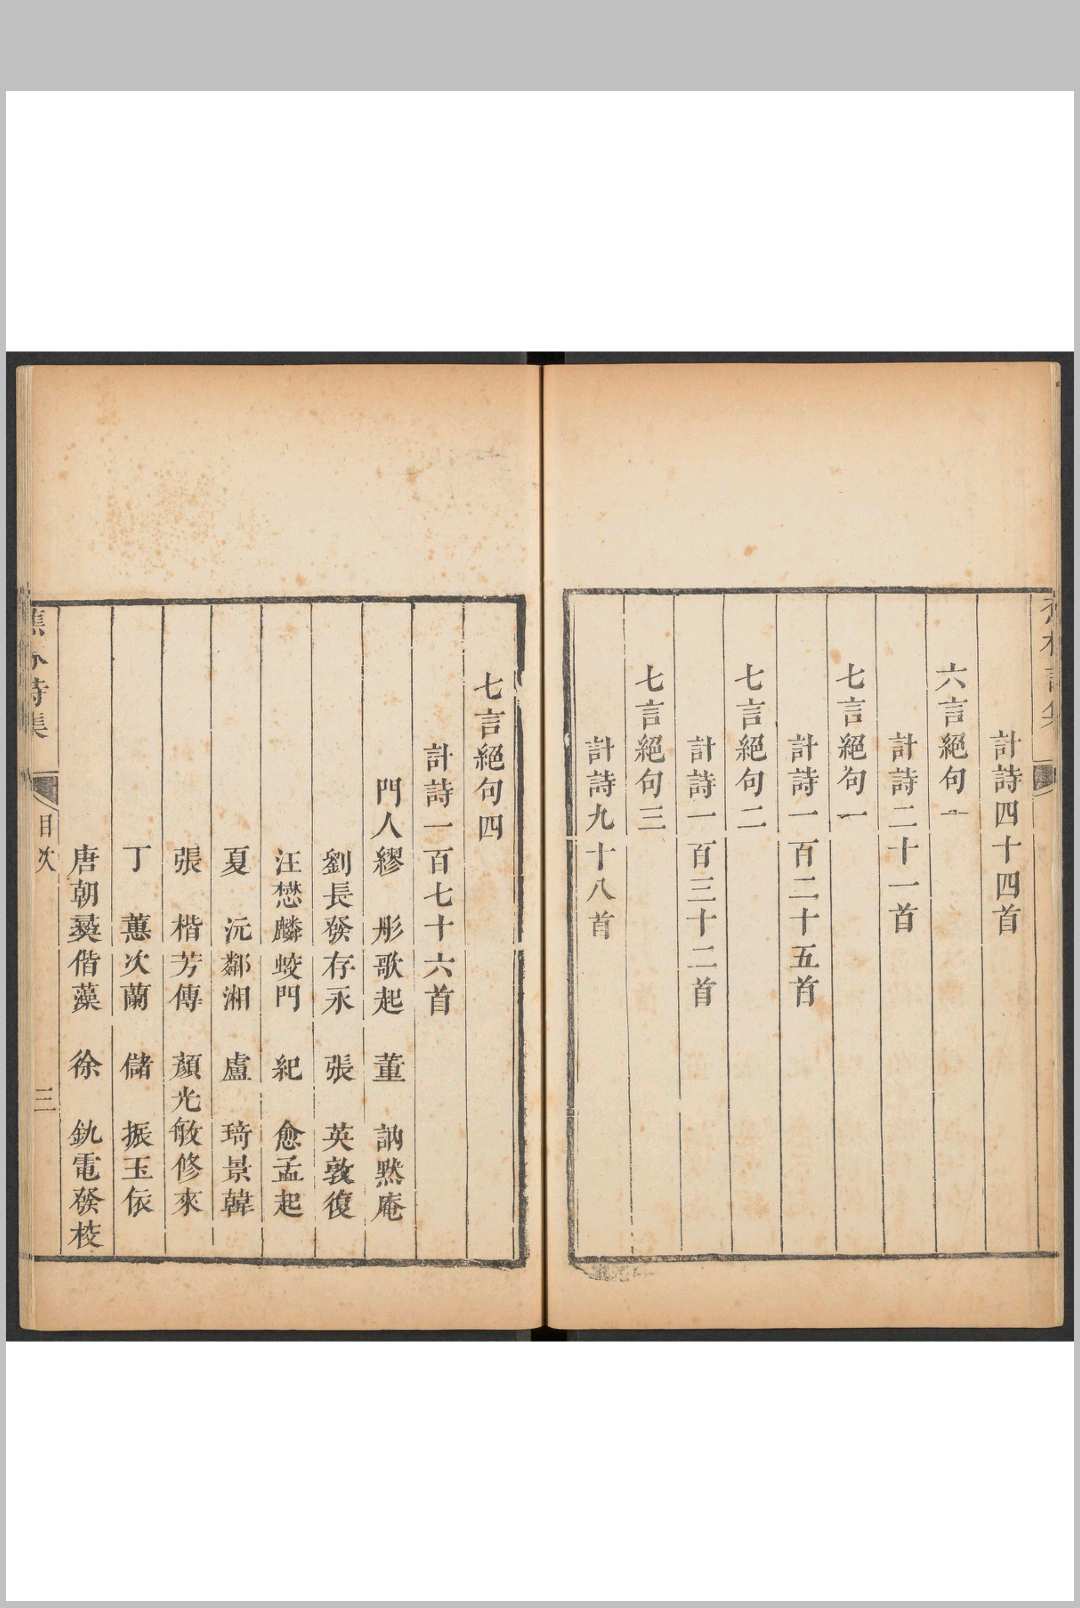 計詩四十四首
六言絕句
計詩二十一首
七言絕句一
計詩一百二十五首
七言絕句二
計詩一百三十二首
七言絕句三
計詩九十八首
七言絕句四
計詩一百七十六首
門人繆 彤歌起 董 訥黙庵
劉長發存永 張 英敦復
汪懋麟蛟門 紀 愈孟起
夏 沅鄰湘 盧 琦景韓
張 楷芳傳 顏光敏修來
丁 蕙次蘭 儲 振玉依
唐朝彝偕藻 徐 釚電發校
蕉林詩集 目次 三